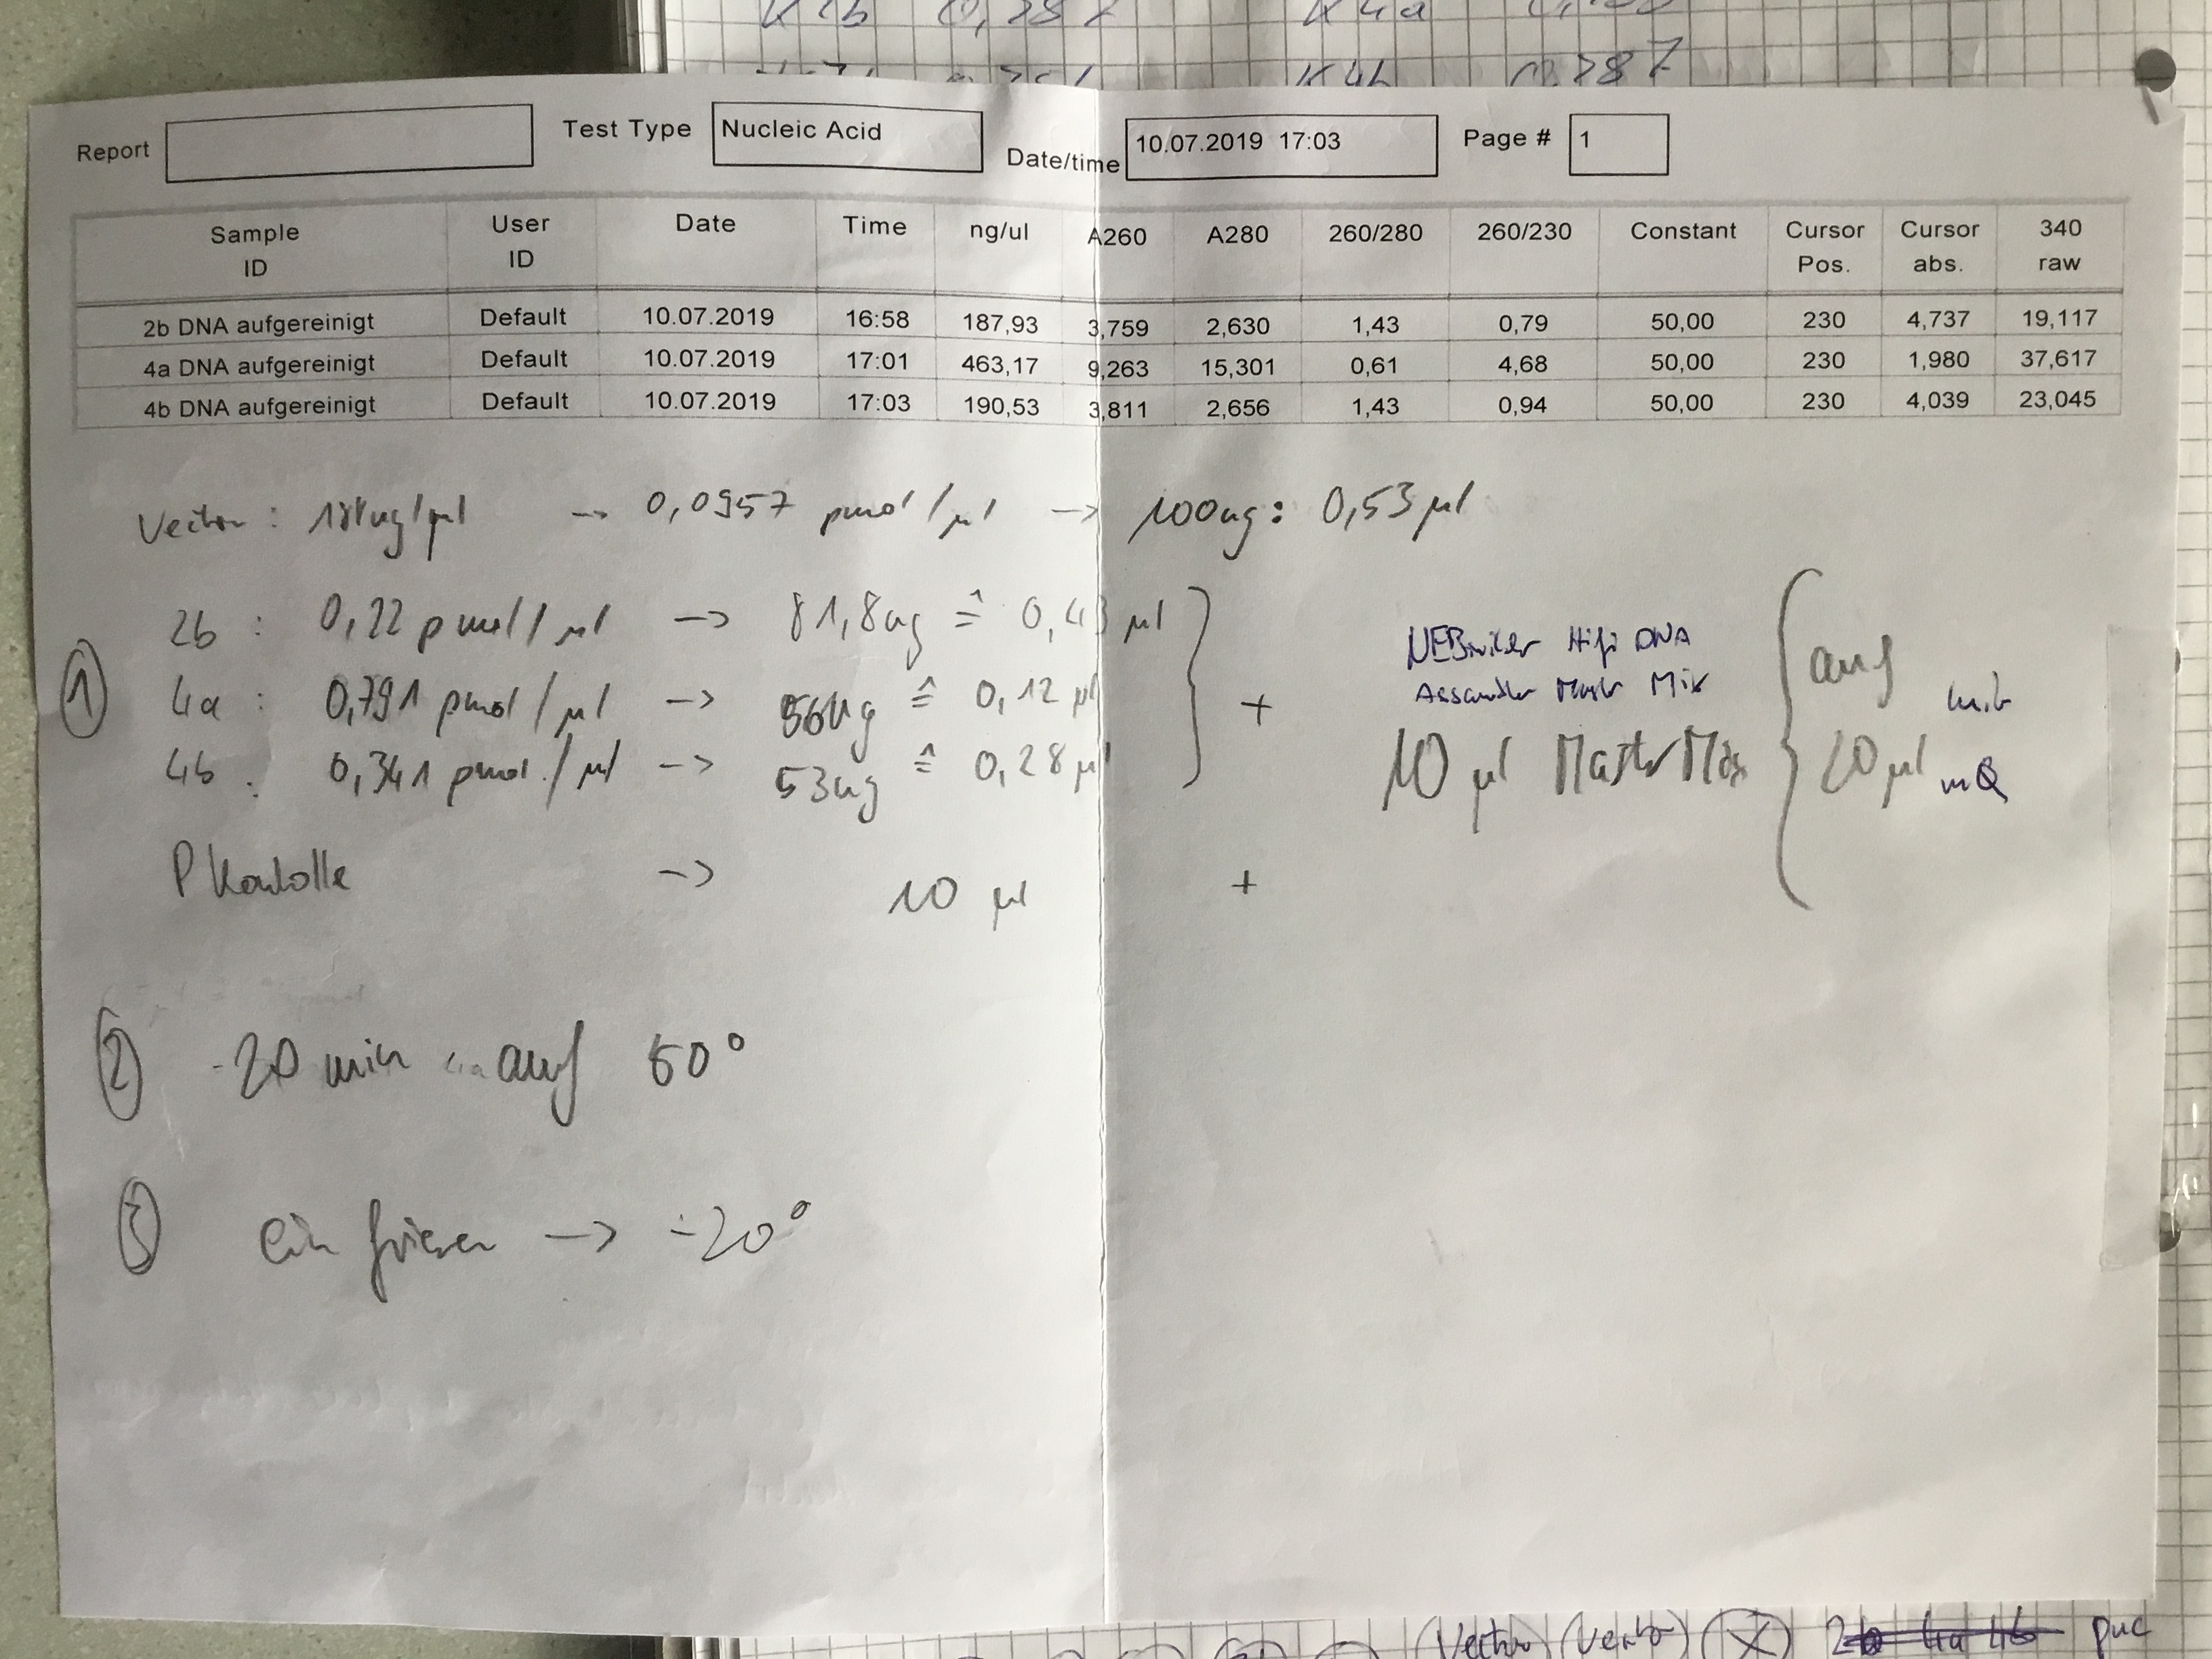 K 2b 0,787 K 4a
K 4b 0,787
Report Test Type Nucleic Acid Date/time 10.07.2019 17:03 Page # 1
Sample ID User ID Date Time ng/ul A260 A280 260/280 260/230 Constant Cursor Pos. Cursor abs. 340 raw
2b DNA aufgereinigt Default 10.07.2019 16:58 187,93 3,759 2,630 1,43 0,79 50,00 230 4,737 19,117
4a DNA aufgereinigt Default 10.07.2019 17:01 463,17 9,263 15,301 0,61 4,68 50,00 230 1,980 37,617
4b DNA aufgereinigt Default 10.07.2019 17:03 190,53 3,811 2,656 1,43 0,94 50,00 230 4,039 23,045
Vector : ng/µl → 0,0957 pmol/µl → 100ng: 0,53 µl
① 2b : 0,22 pmol/µl → 81,8ng ≙ 0,43 µl
4a : 0,791 pmol/µl → 56ng ≙ 0,12 µl
4b : 0,341 pmol/µl → 53ng ≙ 0,28 µl
+ NEBuilder Hifi DNA
Assembler Master Mix
10 µl MasterMix
auf
20 µl mit
mQ
P Kontrolle → 10 µl +
② 20 min auf 50°
③ einfrieren → -20°
Vector Vector X 2b 4a 4b puc